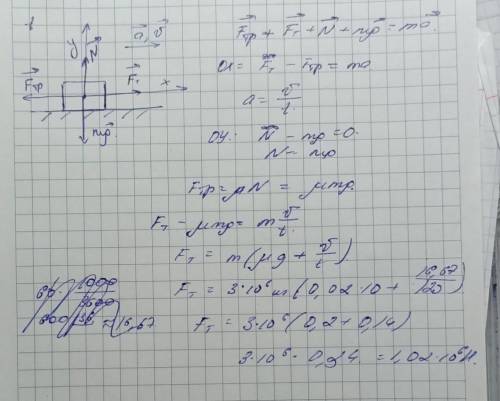 1
y
N⃗
a⃗, υ⃗
F⃗тр
F⃗т
x
mg⃗
F⃗тр + F⃗т + N⃗ + mg⃗ = ma⃗.
Fт - Fтр = ma
a = υ/t.
OY: N - mg = 0.
N = mg
Fтр = μN = μmg.
Fт - μmg = m υ/t.
Fт = m(μg + υ/t)
Fт = 3·10⁶ (0,02·10 + 16,67/
Fт = 3·10⁶ (0,2 + 0,14)
3·10⁶ · 0,34 = 1,02·10⁶ Н.
60 · 1000
3600
600
36
≈ 16,67